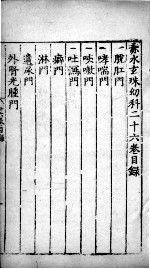 赤水玄珠幼科二十六卷目錄
一脫肛門
一哮喘門
一咳嗽門
一吐瀉門
癖門
淋門
遺尿門
外腎光腫門